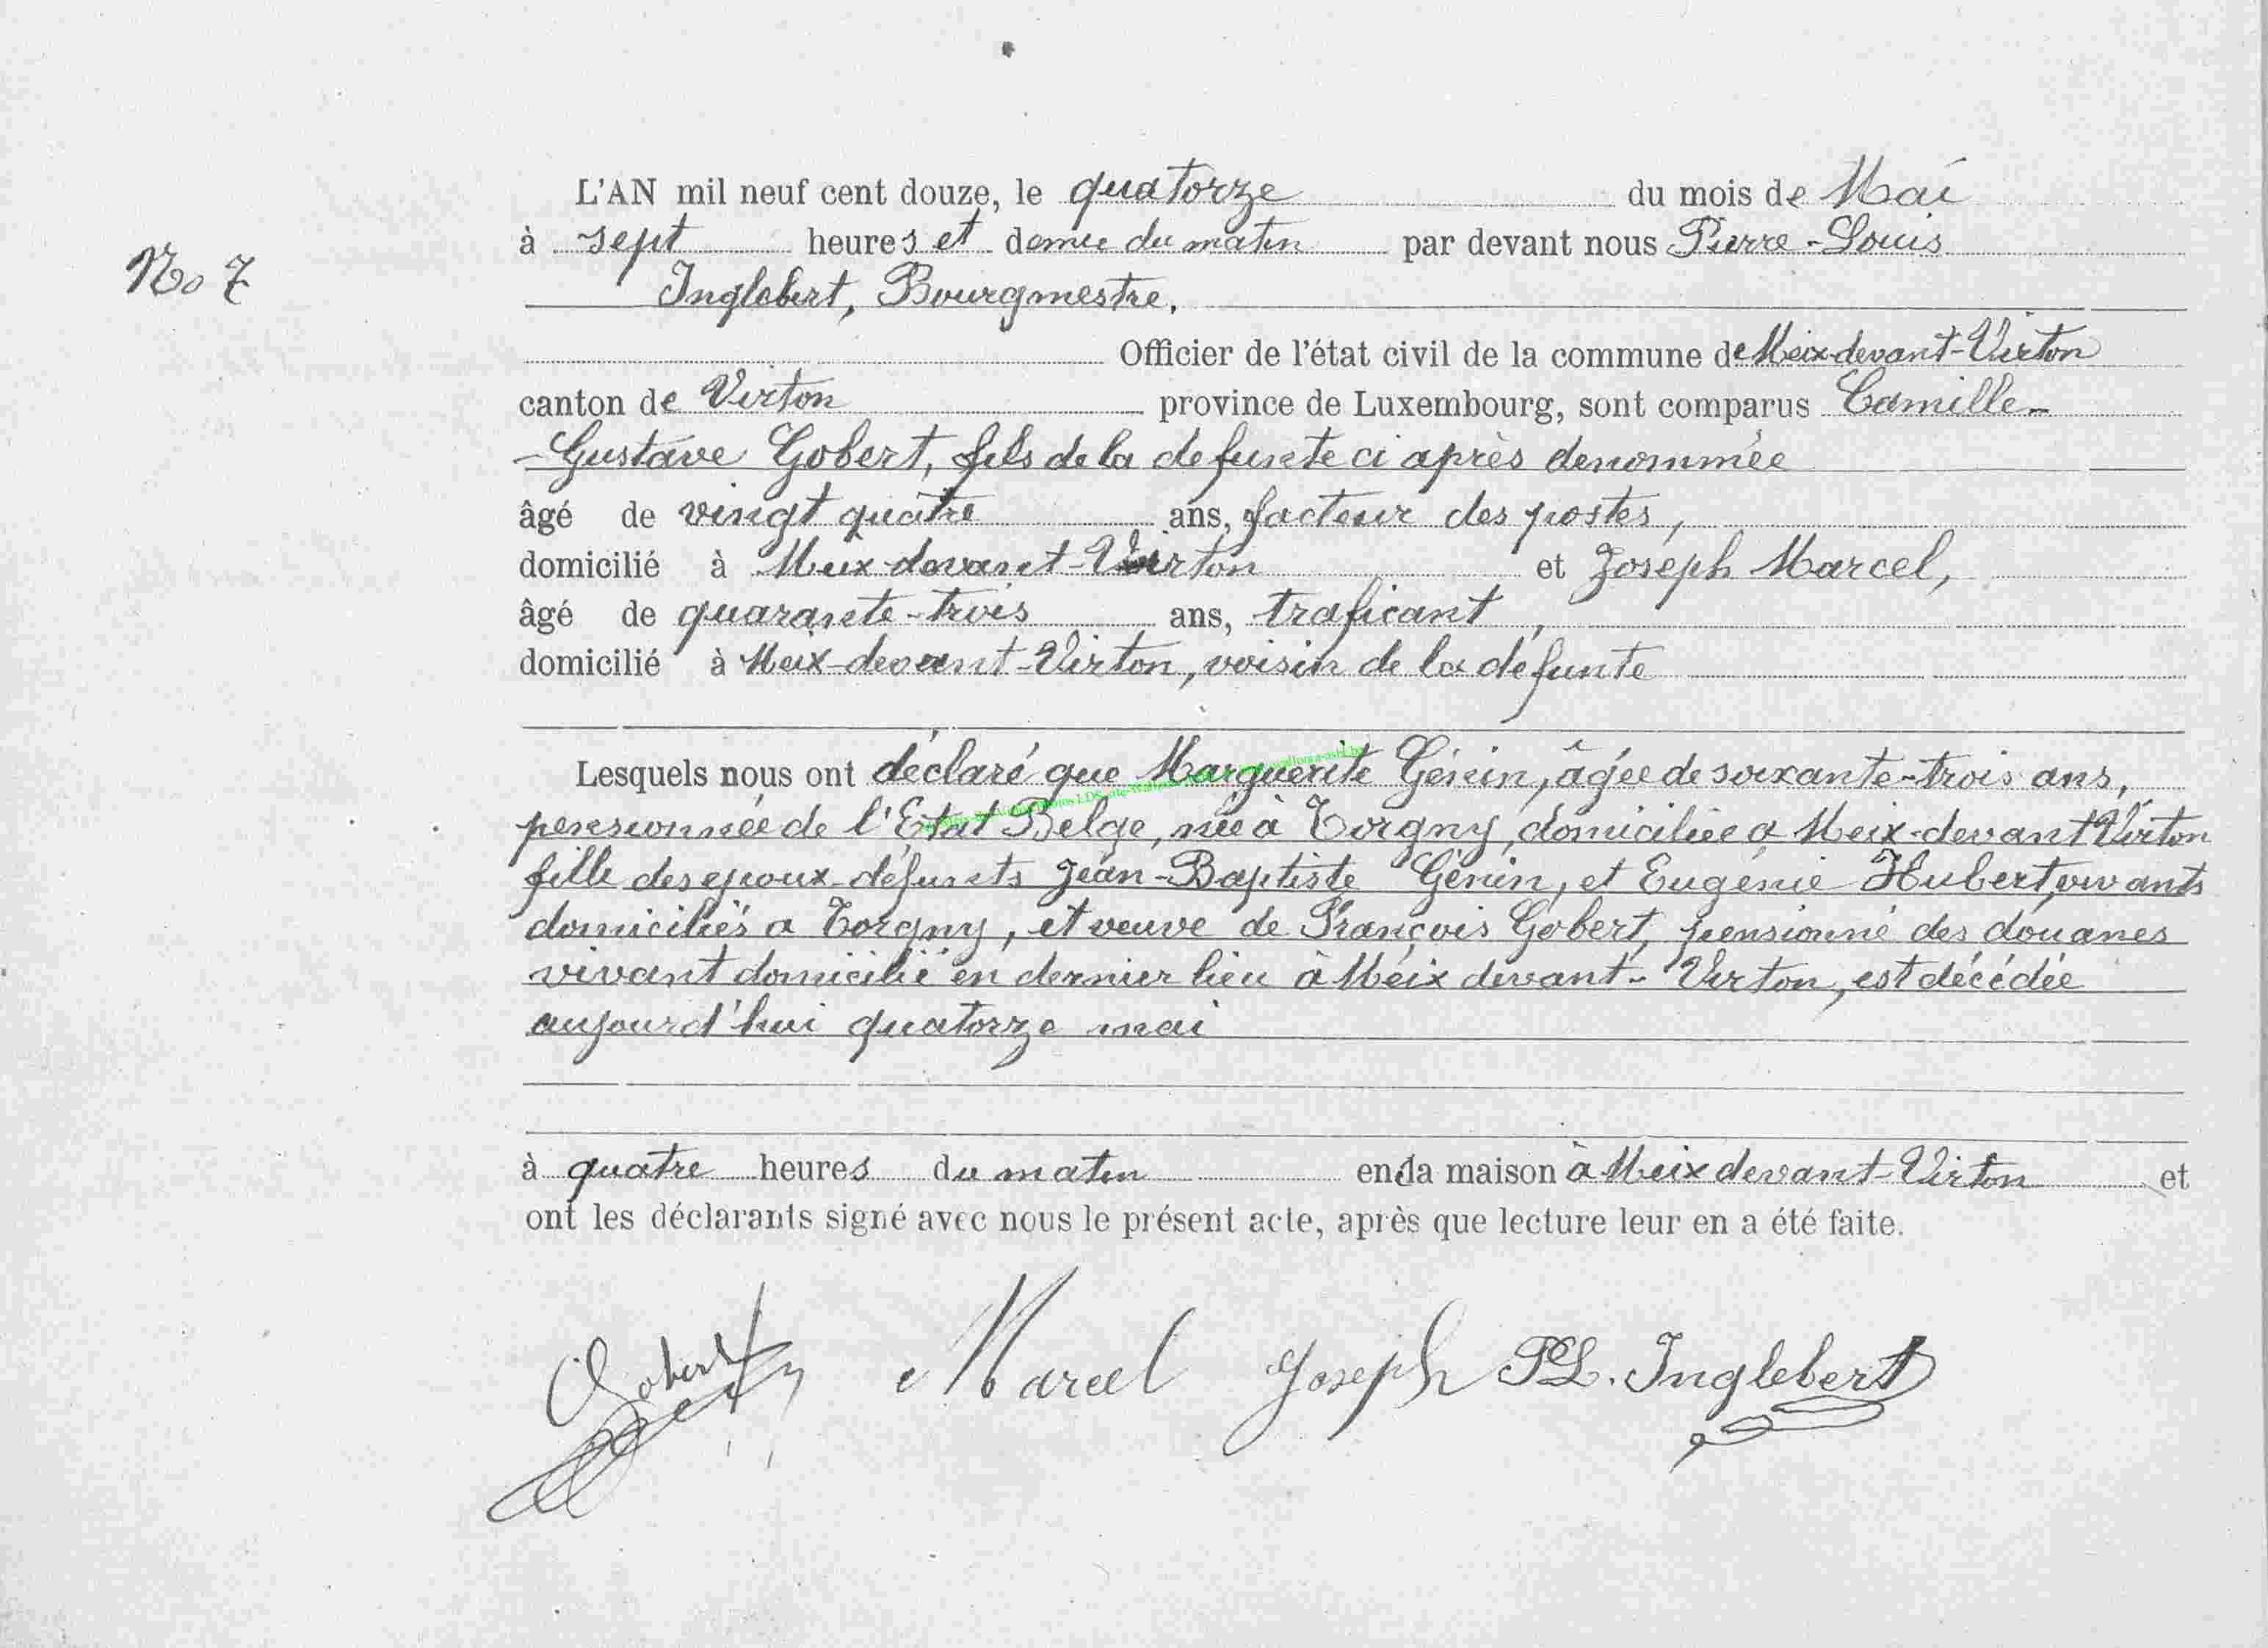 L'AN mil neuf cent douze, le quatorze du mois de Mai
No 7
à sept heures et demie du matin par devant nous Pierre-Louis
Inglebert, Bourgmestre.
Officier de l'état civil de la commune de Meix-devant-Virton
canton de Virton province de Luxembourg, sont comparus Camille-
-Gustave Gobert, fils de la defunte ci après denommée
âgé de vingt quatre ans, facteur des postes,
domicilié à Meix-devant-Virton et Joseph Marcel,
âgé de quarante-trois ans, traficant,
domicilié à Meix-devant-Virton, voisin de la défunte
Lesquels nous ont déclaré que Marguerite Génin, âgée de soixante-trois ans,
pensionnée de l'Etat Belge, née à Torgny, domiciliée a Meix-devant Virton
fille des epoux défunts Jean-Baptiste Génin, et Eugénie Hubert, vivants
domiciliés a Torgny, et veuve de François Gobert, pensionné des douanes
vivant domicilié en dernier lieu à Meix devant-Virton, est décédée
aujourd'hui quatorze mai
à quatre heures du matin en la maison à Meix devant-Virton et
ont les déclarants signé avec nous le présent acte, après que lecture leur en a été faite.
Gobert Marcel Joseph PL. Inglebert